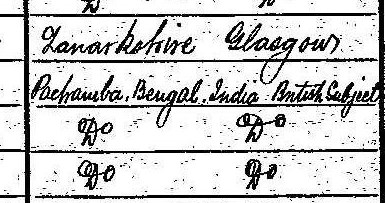 Lanarkshire Glasgow
Pachamba, Bengal, India British Subject
Do Do
Do Do